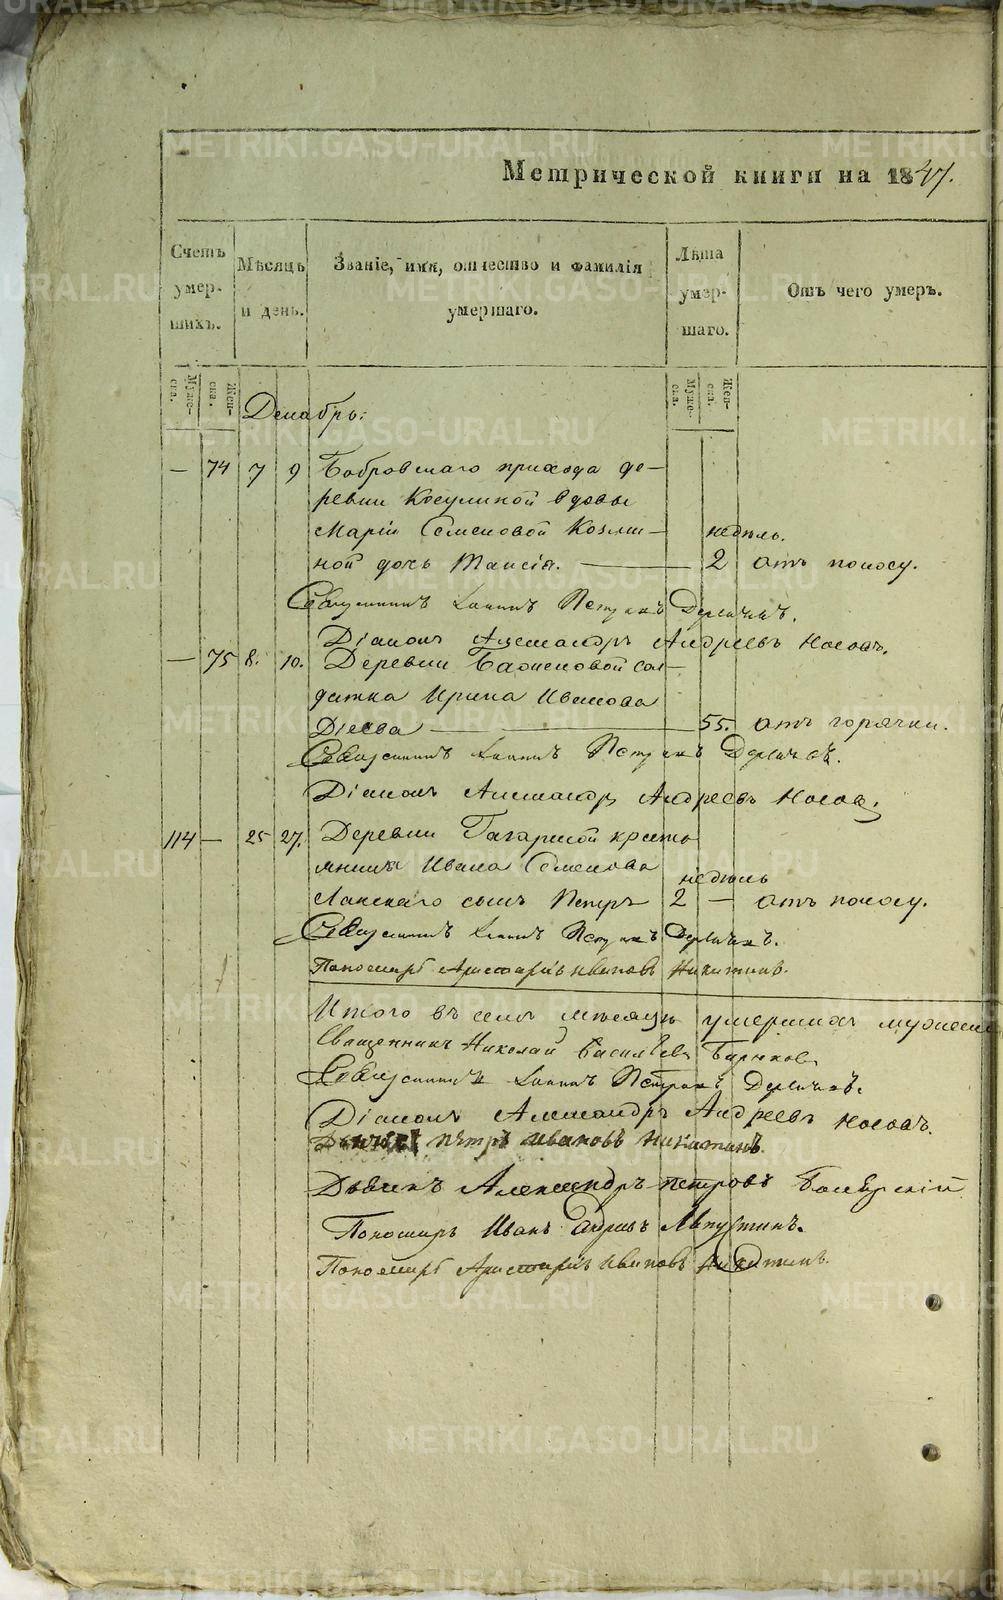 Метрической книги на 1847.
Счетъ умершихъ.
Мѣсяцъ и день.
Званіе, имя, отчество и фамилія умершаго.
Лѣта умершаго.
Отъ чего умеръ.
Мужеска.
Женска.
Мужеска.
Женска.
Декабрь.
— 74 7 9 Бобровскаго прихода де-
ревни Косулиной вдовы
Маріи Семеновой Козми- недѣль.
ной дочь Таисія. — 2 отъ поносу.
Священникъ Іоаннъ Петровъ
Діаконъ Александръ Андреевъ Носовъ.
— 75 8. 10. Деревни Баженовой сол-
датка Ирина Иванова
Діева — 55. отъ горячки.
Священникъ Іоаннъ Петровъ
Діаконъ Александръ Андреевъ Носовъ.
114 — 25 27. Деревни Гагарской кресть-
янина Ивана Семенова недѣль
Ланскаго сынъ Петръ 2 — отъ поносу.
Священникъ Іоаннъ Петровъ
Пономарь Аристархъ Ивановъ Никитинъ.
Итого въ семъ мѣсяцѣ умершихъ мужеска
Священникъ Николай Васильевъ Бирюковъ
Священникъ Іоаннъ Петровъ
Діаконъ Александръ Андреевъ Носовъ.
Петръ Ивановъ Никитинъ.
Дьячекъ Александръ Петровъ
Пономарь Иванъ
Пономарь Аристархъ Ивановъ Никитинъ.
METRIKI.GASO-URAL.RU